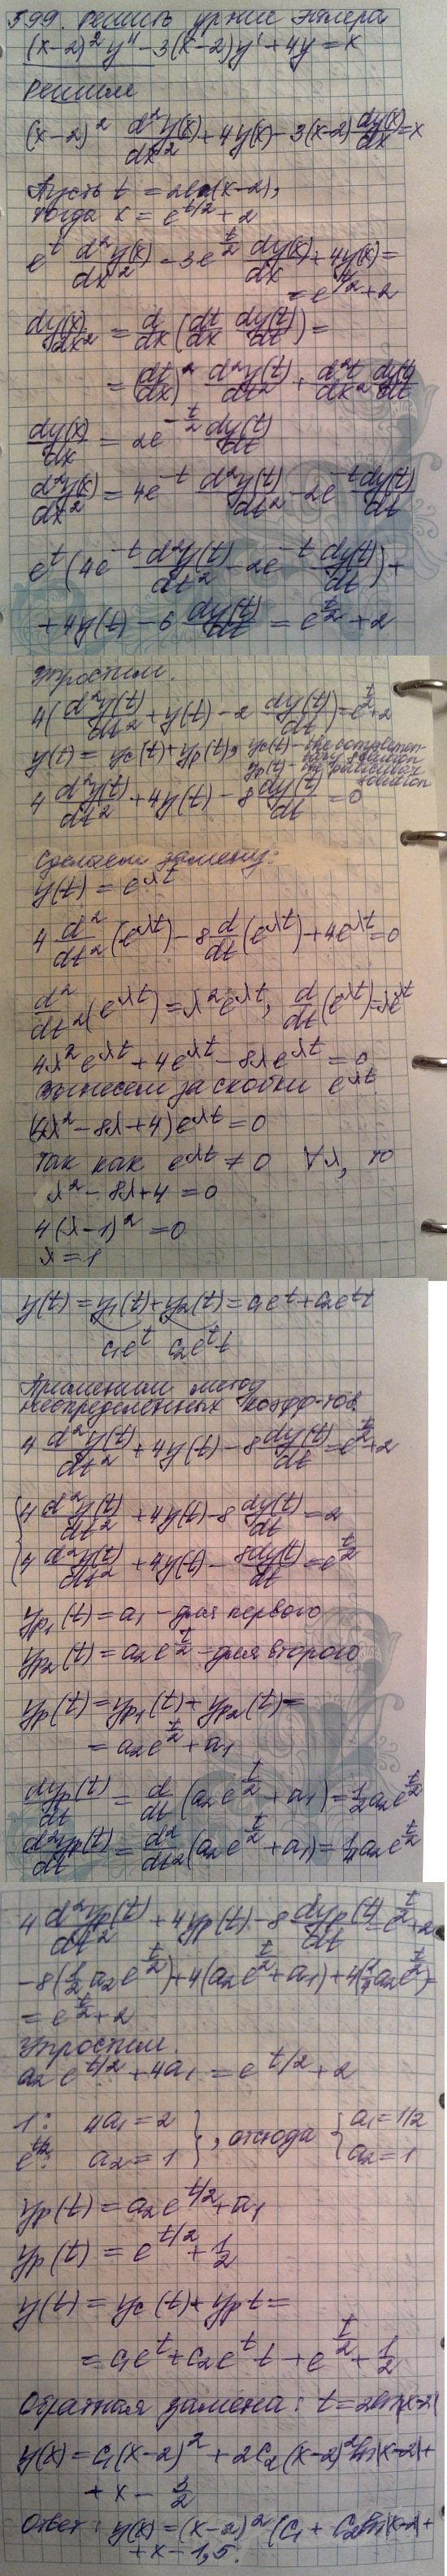 599. Решить ур-ние Эйлера
(x-2)²y'' - 3(x-2)y' + 4y = x
Решим
(x-2)² d²y(x)/dx² + 4y(x) - 3(x-2) dy(x)/dx = x
Пусть t = 2ln(x-2),
тогда x = e^(t/2) + 2
e^t d²y(x)/dx² - 3e^(t/2) dy(x)/dx + 4y(x) =
= e^(t/2) + 2
dy(x)/dx² = d/dx (dt/dx dy(t)/dt) =
= (dt/dx)² d²y(t)/dt² + d²t/dx² dy(t)/dt
dy(x)/dx = 2e^(-t/2) dy(t)/dt
d²y(x)/dx² = 4e^(-t) d²y(t)/dt² - 2e^(-t) dy(t)/dt
e^t (4e^(-t) d²y(t)/dt² - 2e^(-t) dy(t)/dt) +
+ 4y(t) - 6 dy(t)/dt = e^(t/2) + 2
Упростим.
4(d²y(t)/dt² + y(t) - 2 dy(t)/dt) = e^(t/2) + 2
y(t) = yc(t) + yp(t), yc(t) - the complemen-
tary solution
yp(t) - the particular
solution
4 d²y(t)/dt² + 4y(t) - 8 dy(t)/dt = 0
Сделаем замену:
y(t) = e^(λt)
4 d²/dt² (e^(λt)) - 8 d/dt (e^(λt)) + 4e^(λt) = 0
d²/dt² (e^(λt)) = λ²e^(λt), d/dt (e^(λt)) = λe^(λt)
4λ²e^(λt) + 4e^(λt) - 8λe^(λt) = 0
Вынесем за скобки e^(λt)
(4λ² - 8λ + 4)e^(λt) = 0
Так как e^(λt) ≠ 0 ∀λ, то
λ² - 8λ + 4 = 0
4(λ-1)² = 0
λ = 1
y(t) = y1(t) + y2(t) = c1e^t + c2e^t t
c1e^t c2e^t t
Применим метод
неопределенных коэфф-тов
4 d²y(t)/dt² + 4y(t) - 8 dy(t)/dt = e^(t/2) + 2
{ 4 d²y(t)/dt² + 4y(t) - 8 dy(t)/dt = 2
4 d²y(t)/dt² + 4y(t) - 8dy(t)/dt = e^(t/2)
yp1(t) = a1 - для первого
yp2(t) = a2e^(t/2) - для второго
yp(t) = yp1(t) + yp2(t) =
= a2e^(t/2) + a1
dyp(t)/dt = d/dt (a2e^(t/2) + a1) = 1/2 a2e^(t/2)
d²yp(t)/dt = d²/dt² (a2e^(t/2) + a1) = 1/4 a2e^(t/2)
4 d²yp(t)/dt² + 4yp(t) - 8 dyp(t)/dt = e^(t/2) + 2
-8(1/2 a2e^(t/2)) + 4(a2e^(t/2) + a1) + 4(1/4 a2e^(t/2)) =
= e^(t/2) + 2
Упростим.
a2e^(t/2) + 4a1 = e^(t/2) + 2
1: 4a1 = 2 }, отсюда { a1 = 1/2
e^(t/2): a2 = 1 a2 = 1
yp(t) = a2e^(t/2) + a1
yp(t) = e^(t/2) + 1/2
y(t) = yc(t) + ypt =
= c1e^t + c2e^t t + e^(t/2) + 1/2
Обратная замена: t = 2ln|x-2|
y(x) = c1(x-2)² + 2c2(x-2)²ln|x-2| +
+ x - 3/2
Ответ: y(x) = (x-2)² (c1 + c2ln|x-2| +
+ x - 1,5.